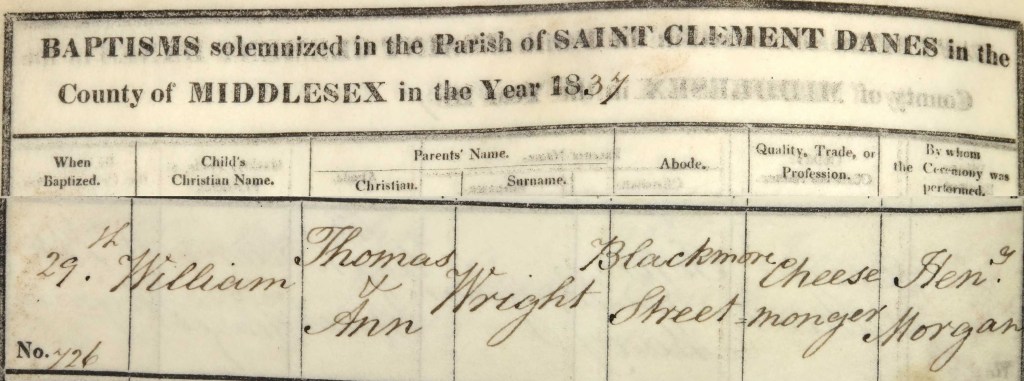 BAPTISMS solemnized in the Parish of SAINT CLEMENT DANES in the
County of MIDDLESEX in the Year 1837
When Baptized.
Child's Christian Name.
Parents' Name.
Christian.
Surname.
Abode.
Quality, Trade, or Profession.
By whom the Ceremony was performed.
29.th
William
Thomas
&
Ann
Wright
Blackmore
Street
Cheese
=monger
Hen.y
Morgan
No. 726